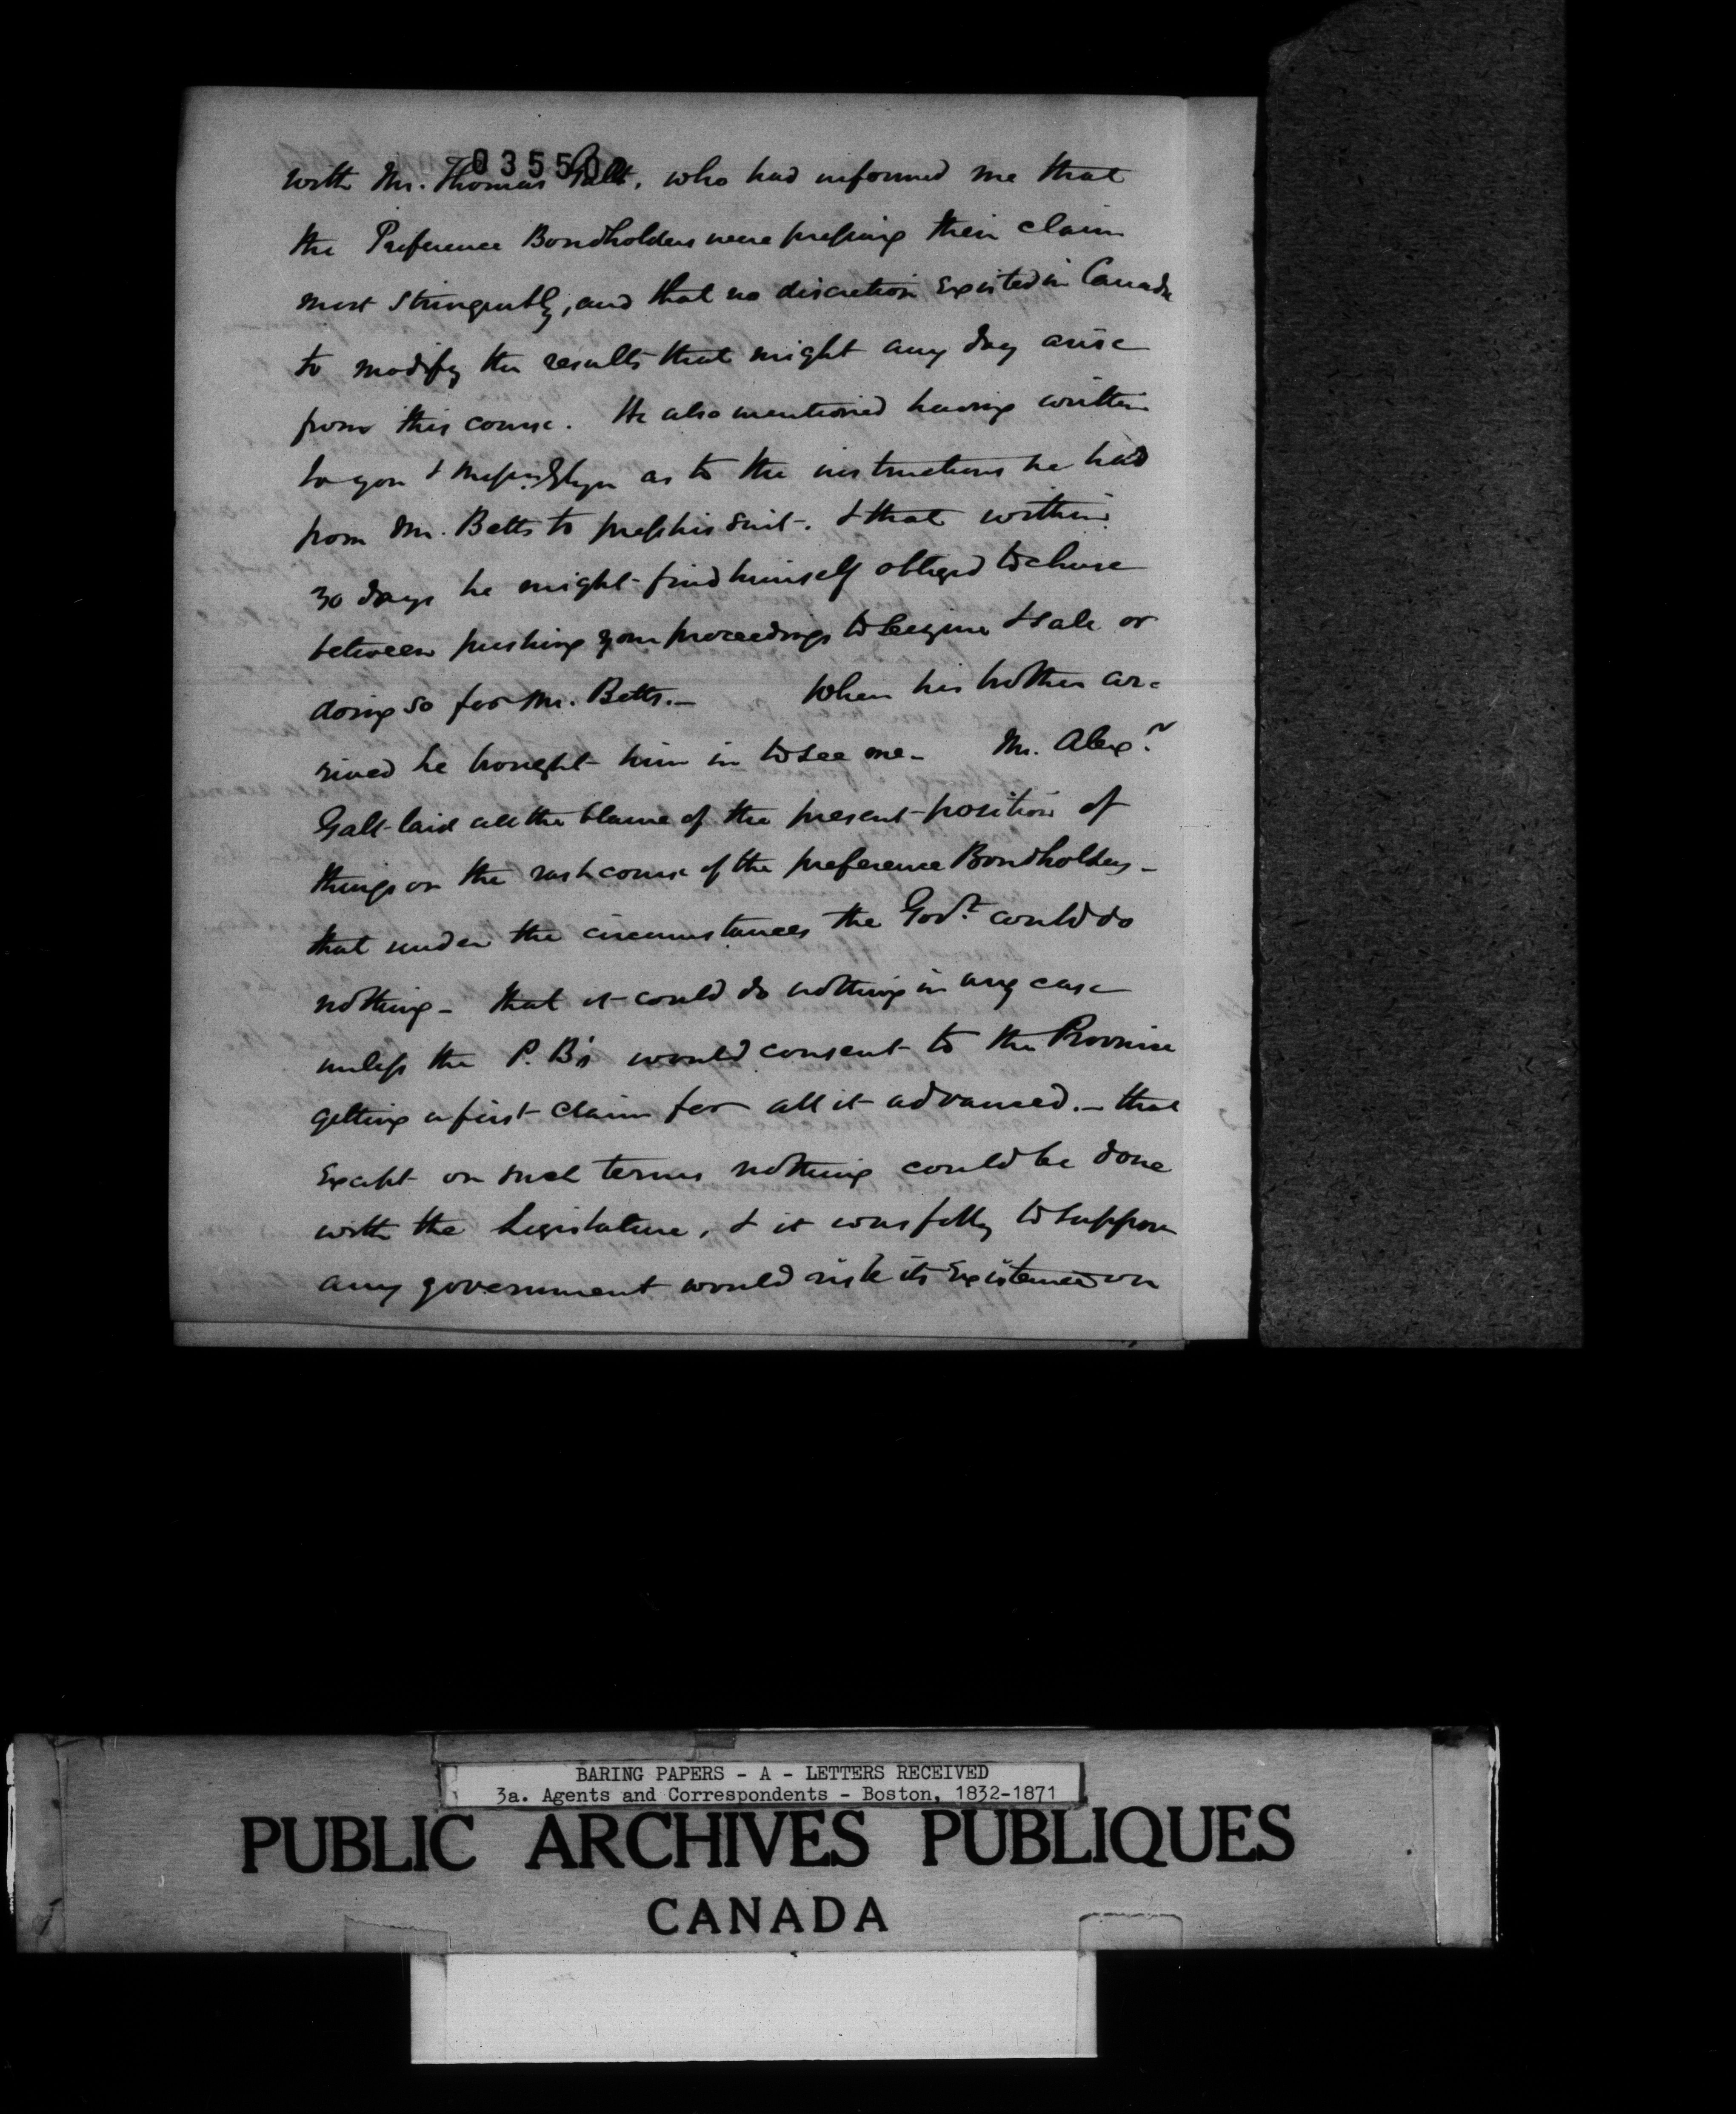 035502
with Mr. Thomas Galt, who had informed me that
the Preference Bondholders were pressing their claim
most stringently, and that no discretion existed in Canada
to modify the results that might any day arise
from this course. He also mentioned having written
to you & Messrs. Glyn as to the instructions he had
from Mr. Betts to press his suit. & that within
30 days he might find himself obliged to chuse
between pushing your proceedings to seizure & sale or
doing so for Mr. Betts.— When his brother ar=
rived he brought him in to see me— Mr. Alexr.
Galt laid all the blame of the present position of
things on the rash course of the preference Bondholders—
that under the circumstances the Govt. could do
nothing— that it could do nothing in any case
unless the P. B's would consent to the Province
getting a first claim for all it advanced.— that
except on such terms nothing could be done
with the Legislature, & it was folly to suppose
any government would risk its existence on
BARING PAPERS - A - LETTERS RECEIVED
3a. Agents and Correspondents - Boston, 1832-1871
PUBLIC ARCHIVES PUBLIQUES
CANADA